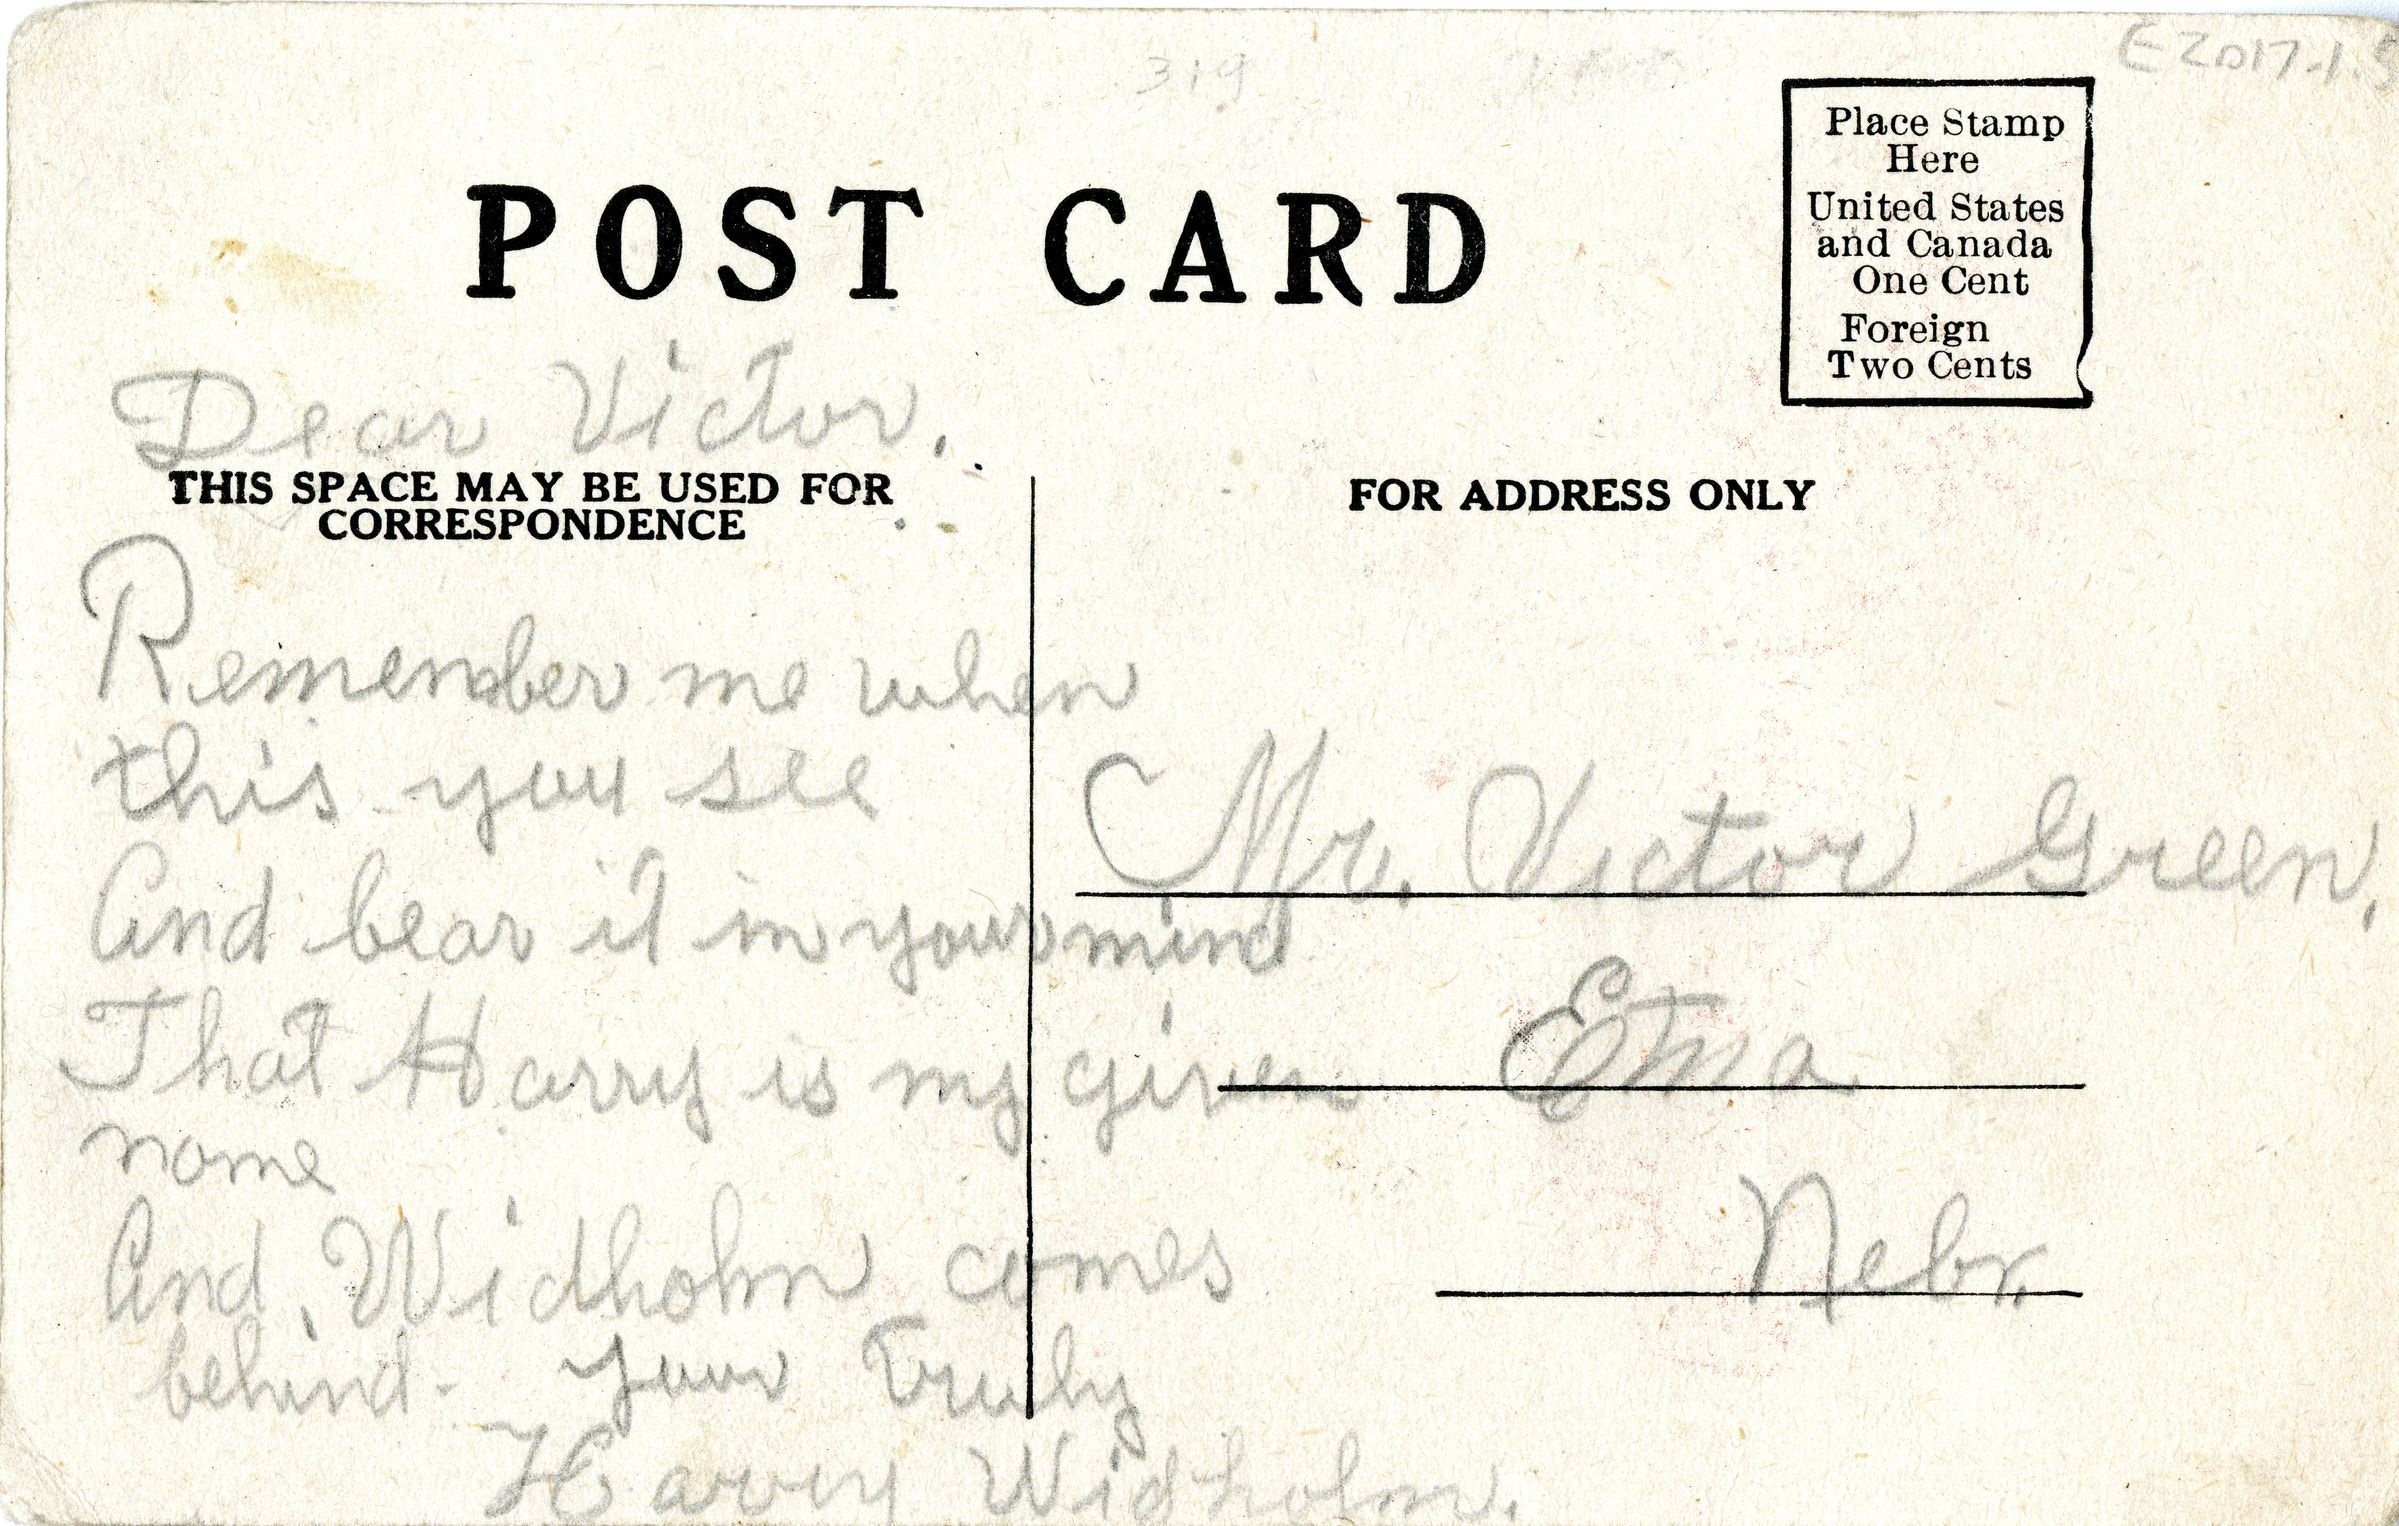 319
E2017.1.5
POST CARD
Place Stamp
Here
United States
and Canada
One Cent
Foreign
Two Cents
Dear Victor,
THIS SPACE MAY BE USED FOR
CORRESPONDENCE
Remember me when
this you see
And bear it in your mind
That Harry is my given
name
And, Widholm comes
behind- your Truly
Harry Widholm.
FOR ADDRESS ONLY
Mr. Victor Green,
Etna
Nebr.